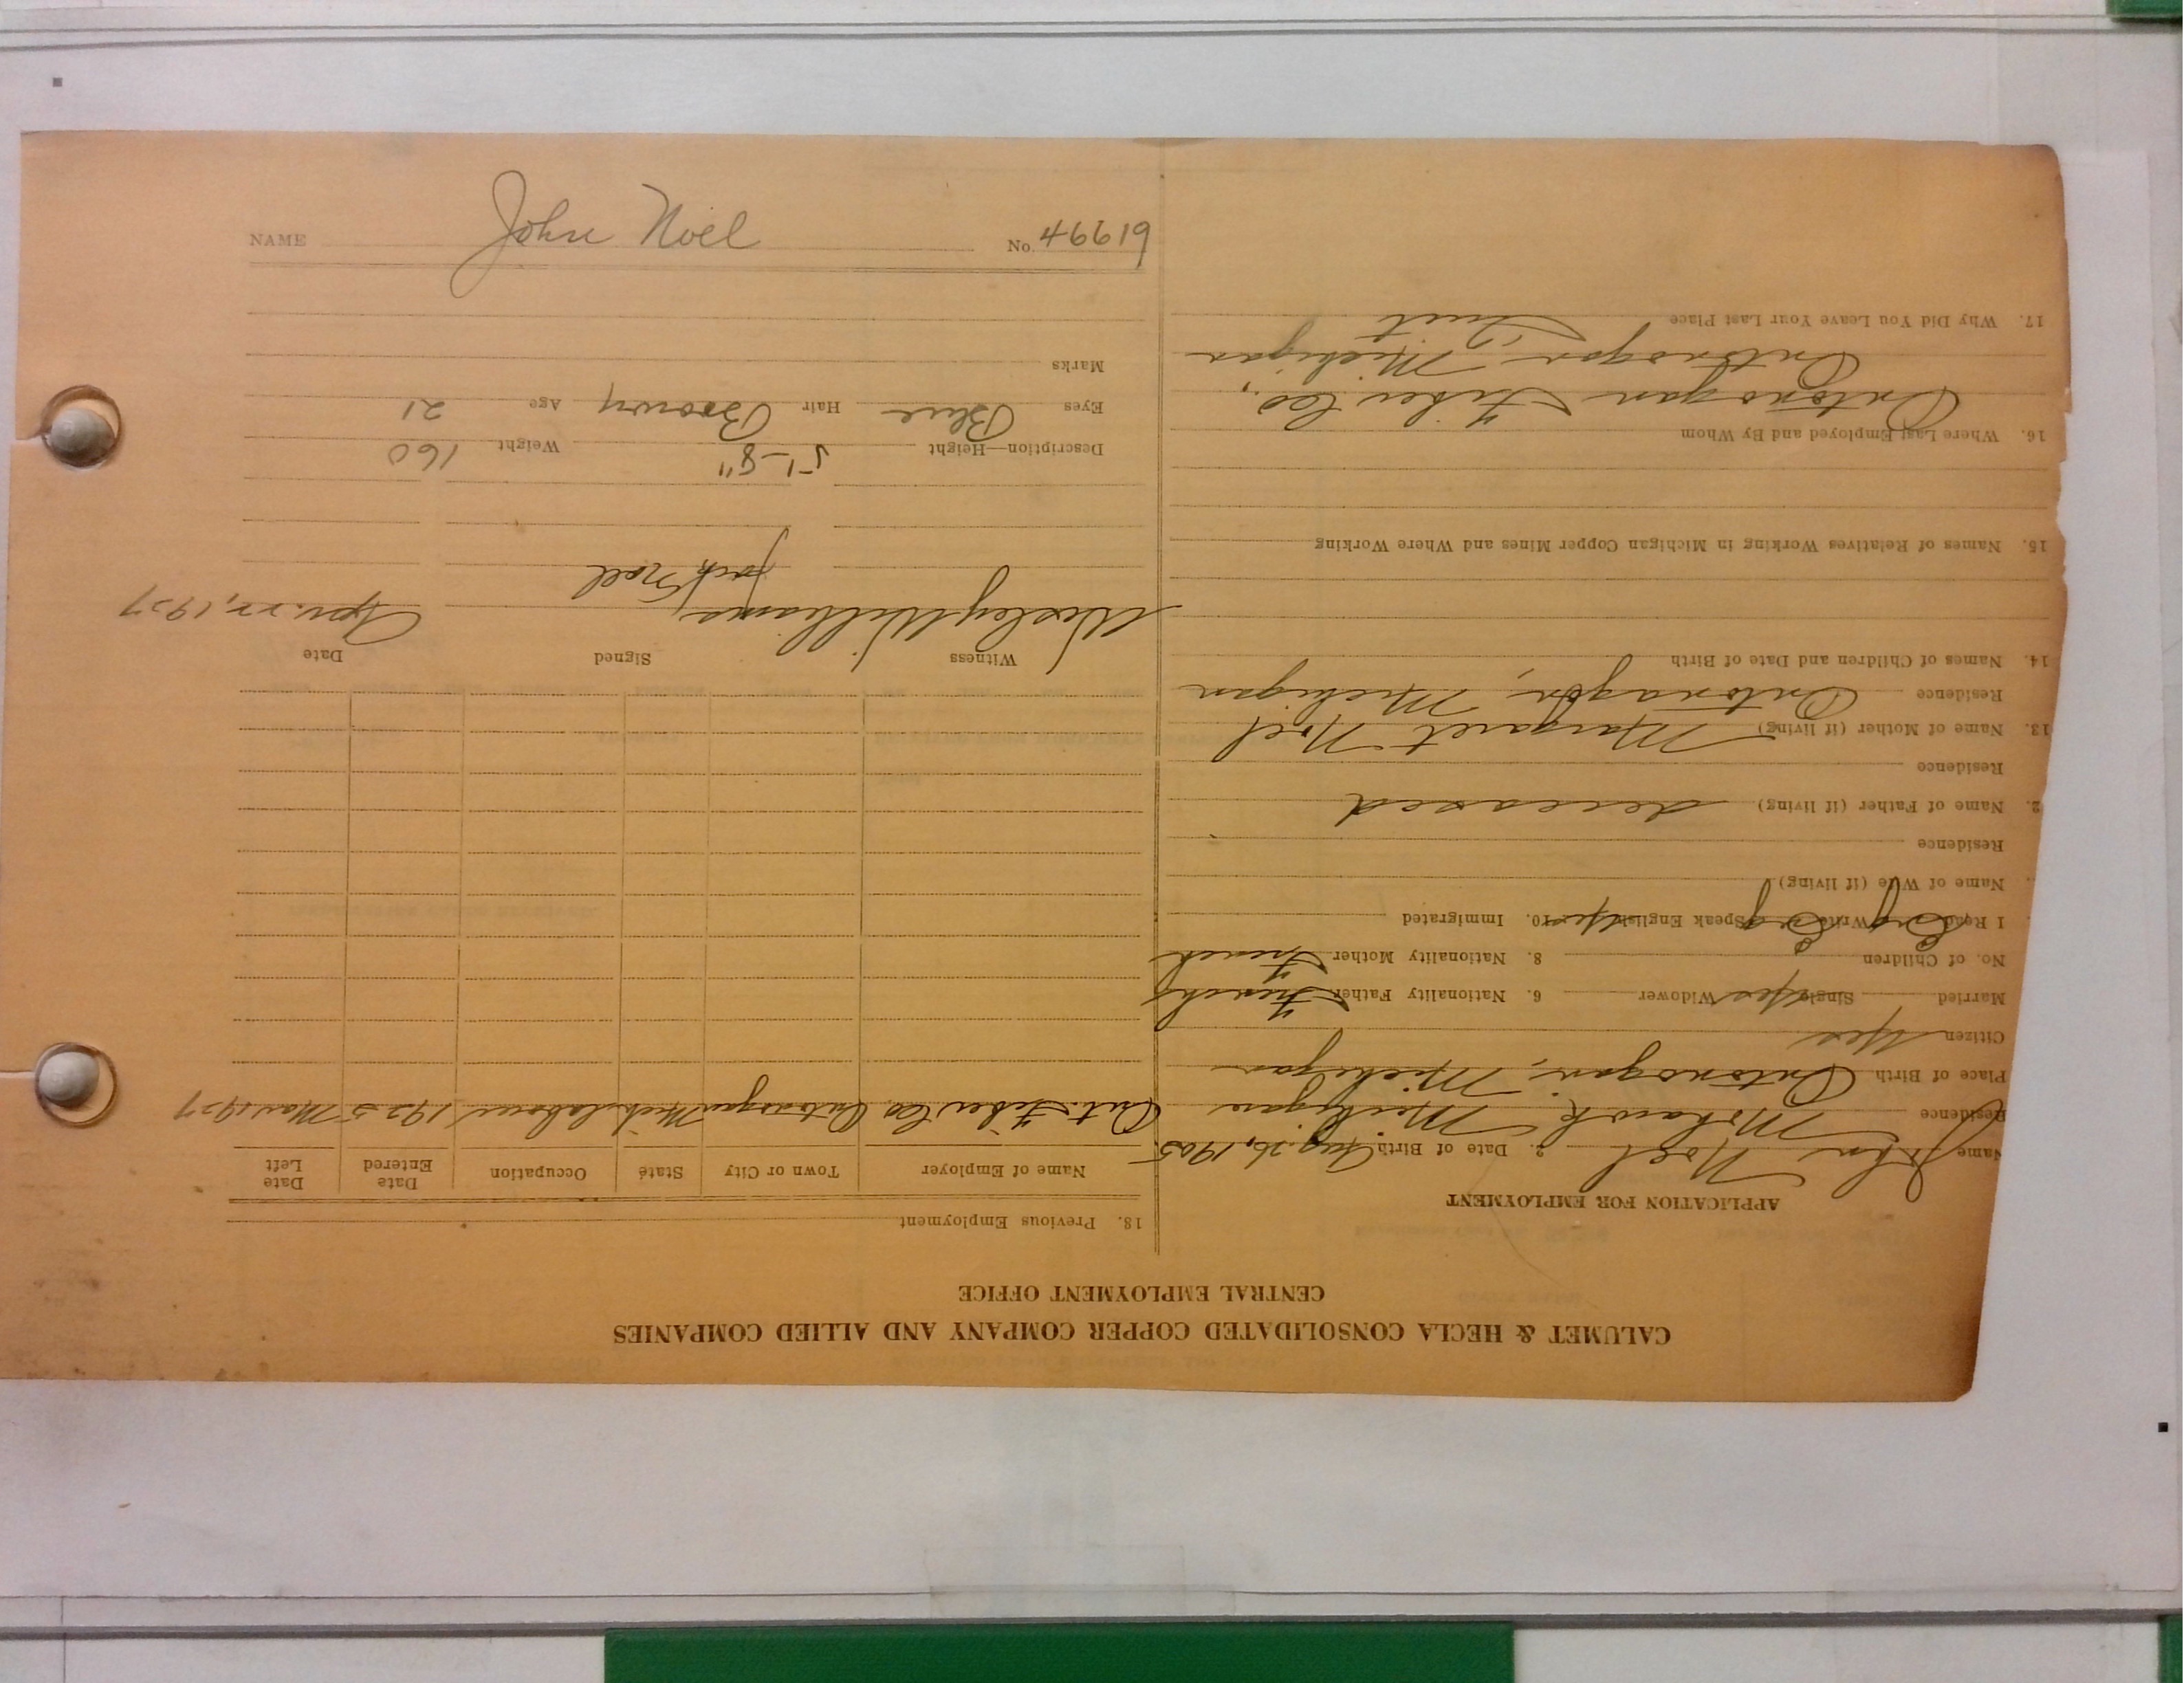 NAME John Noel No. 46619
CALUMET & HECLA CONSOLIDATED COPPER COMPANY AND ALLIED COMPANIES
CENTRAL EMPLOYMENT OFFICE
APPLICATION FOR EMPLOYMENT
Name John Noel 2. Date of Birth Aug. 26, 1905
Residence Mohawk Michigan
Place of Birth Ontonagon, Michigan
Citizen Yes
Married Single Yes Widower 6. Nationality Father French
No. of Children 8. Nationality Mother French
I Read Eng Write Eng Speak English Yes 10. Immigrated
Name of Wife (if living)
Residence
2. Name of Father (if living) deceased
Residence
13. Name of Mother (if living) Margaret Noel
Residence Ontonagon, Michigan
14. Names of Children and Date of Birth
15. Names of Relatives Working in Michigan Copper Mines and Where Working
16. Where Last Employed and By Whom
Ontonogan Fiber Co.,
Ontonogon Michigan
17. Why Did You Leave Your Last Place Quit
18. Previous Employment
Name of Employer Town or City State Occupation Date Entered Date Left
Ont. Fiber Co. Ontonogon Mich labour 1925 Mar 1927
Witness Signed Date
Wesley Williams Jack Noel Apr. 22, 1927
Description—Height 5'-8" Weight 160
Eyes Blue Hair Brown Age 21
Marks